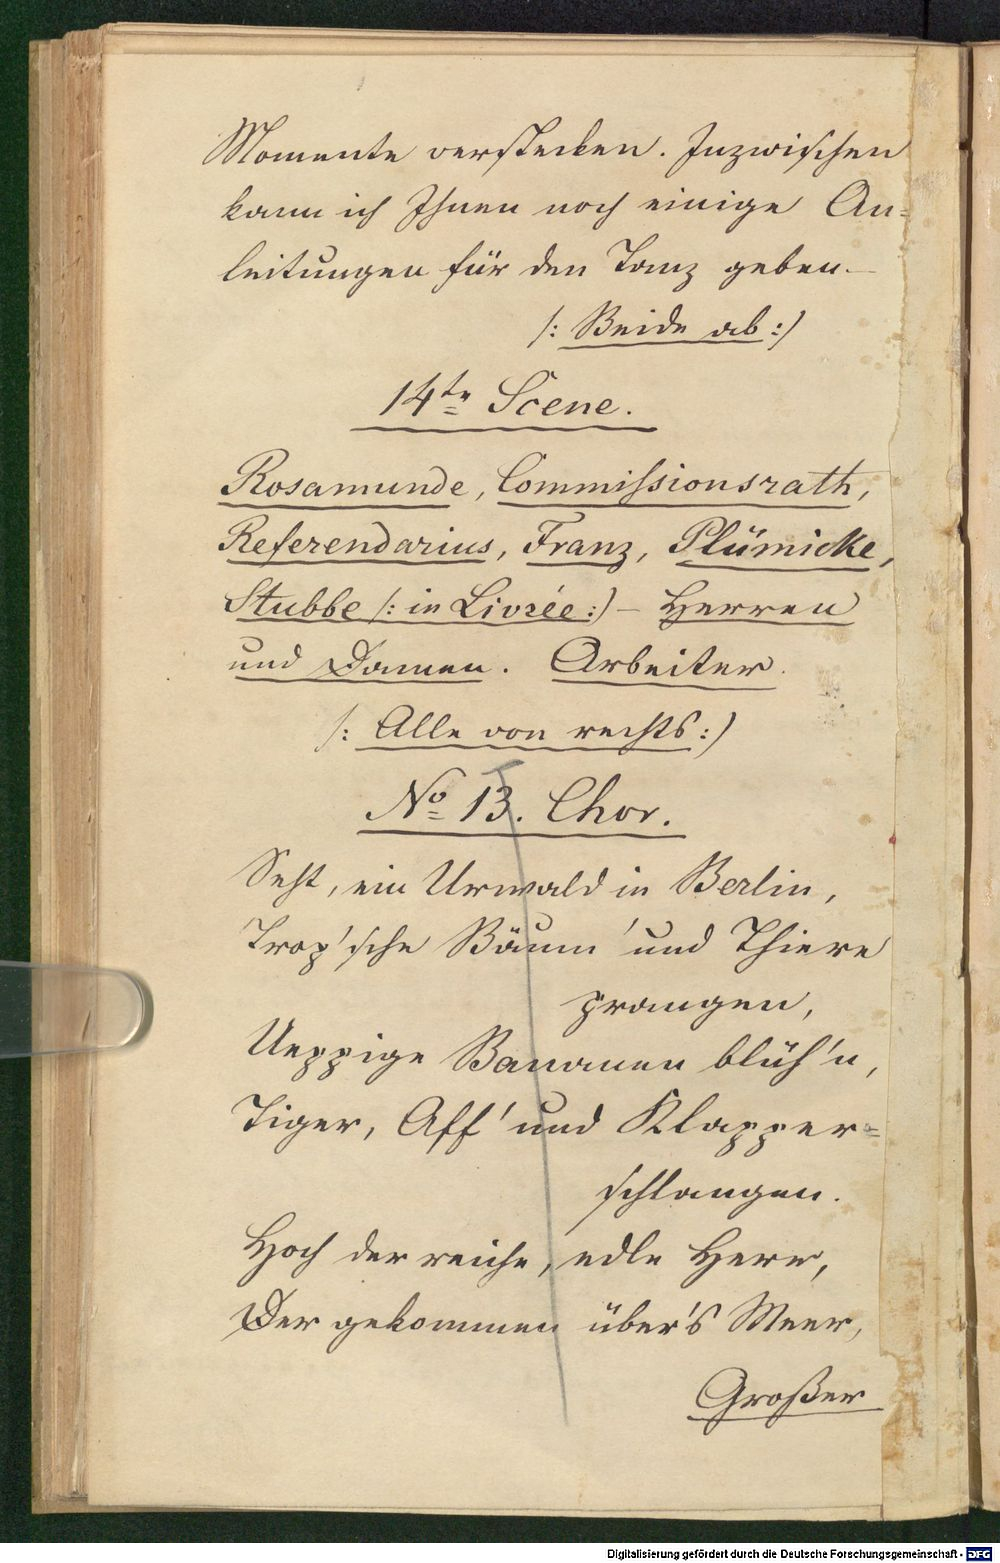 Momente verstecken. Inzwischen
kann ich Ihnen noch einige An=
leitungen für den Tanz geben.—
/: Beide ab :/
14te Scene.
Rosamunde, Commissionsrath,
Referendarius, Franz, Plümicke,
Stubbe /: in Livrée :/ – Herren
und Damen. Arbeiter.
/: Alle von rechts :/
No 13. Chor.
Seht, ein Urwald in Berlin,
Trop'sche Bäum' und Thiere
prangen,
Ueppige Bananen blüh'n,
Tiger, Aff' und Klapper=
schlangen.
Hoch der reiche, edle Herr,
Der gekommen über's Meer,
Großer
Digitalisierung gefördert durch die Deutsche Forschungsgemeinschaft - DFG